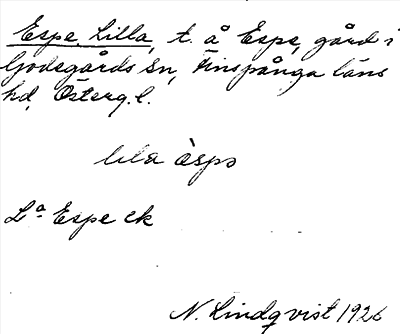 Espe, Lilla, t. å Espe, gård i
Godegårds sn, Finspånga läns
hd, Österg. l.
lila èspə
La Espe ek
N. Lindqvist 1926